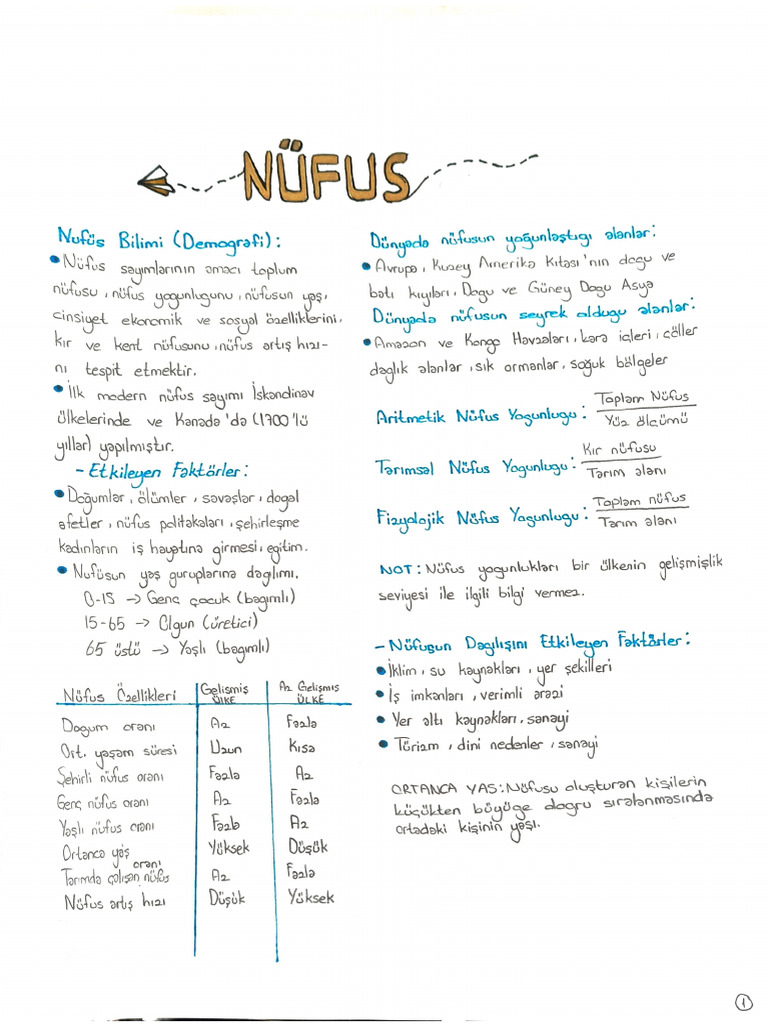 NÜFUS
Nufüs Bilimi (Demografi):
• Nüfus sayımlarının amacı toplum
nüfusu, nüfus yogunlugunu, nüfusun yaş,
cinsiyet ekonomik ve sosyal özelliklerini,
kır ve kent nüfusunu, nüfus artış hızı-
nı tespit etmektir.
• İlk modern nüfus sayımı İskandinav
ülkelerinde ve Kanada'da (1700'lü
yıllar) yapılmıştır.
- Etkileyen Faktörler:
• Doğumlar, ölümler, savaşlar, dogal
afetler, nüfus politakaları, şehirleşme
kadınların iş hayatına girmesi, egitim.
• Nufüsun yaş guruplarına dagılımı.
0-15 → Genç çocuk (bagımlı)
15-65 → Olgun (üretici)
65 üstü → Yaşlı (bagımlı)
Nüfus Özellikleri Gelişmiş ÜLKE Az Gelişmiş ÜLKE
Dogum oranı Az Fazla
Ort. yaşam süresi Uzun Kısa
Şehirli nüfus oranı Fazla Az
Genç nüfus oranı Az Fazla
Yaşlı nüfus oranı Fazla Az
Ortanca yaş Yüksek Düşük
Tarımda çalışan nüfus oranı Az Fazla
Nüfus artış hızı Düşük Yüksek
Dünyada nüfusun yoğunlaştıgı alanlar:
• Avrupa, Kuzey Amerika Kıtası'nın dogu ve
batı kıyıları, Dogu ve Güney Dogu Asya
Dünyada nüfusun seyrek oldugu alanlar:
• Amazon ve Kongo Havzaları, kara içleri, çöller
daglık alanlar, sık ormanlar, soğuk bölgeler
Aritmetik Nüfus Yogunlugu: Toplam Nüfus
Yüz ölçümü
Tarımsal Nüfus Yogunlugu: Kır nüfusu
Tarım alanı
Fizyolojik Nüfus Yogunlugu: Toplam nüfus
Tarım alanı
NOT: Nüfus yogunlukları bir ülkenin gelişmişlik
seviyesi ile ilgili bilgi vermez.
- Nüfusun Dagılışını Etkileyen Faktörler:
• İklim, su kaynakları, yer şekilleri
• İş imkanları, verimli arazi
• Yer altı kaynakları, sanayi
• Turizm, dini nedenler, sanayi
ORTANCA YAS: Nüfusu oluşturan kişilerin
küçükten büyüge dogru sıralanmasında
ortadaki kişinin yaşı.
1